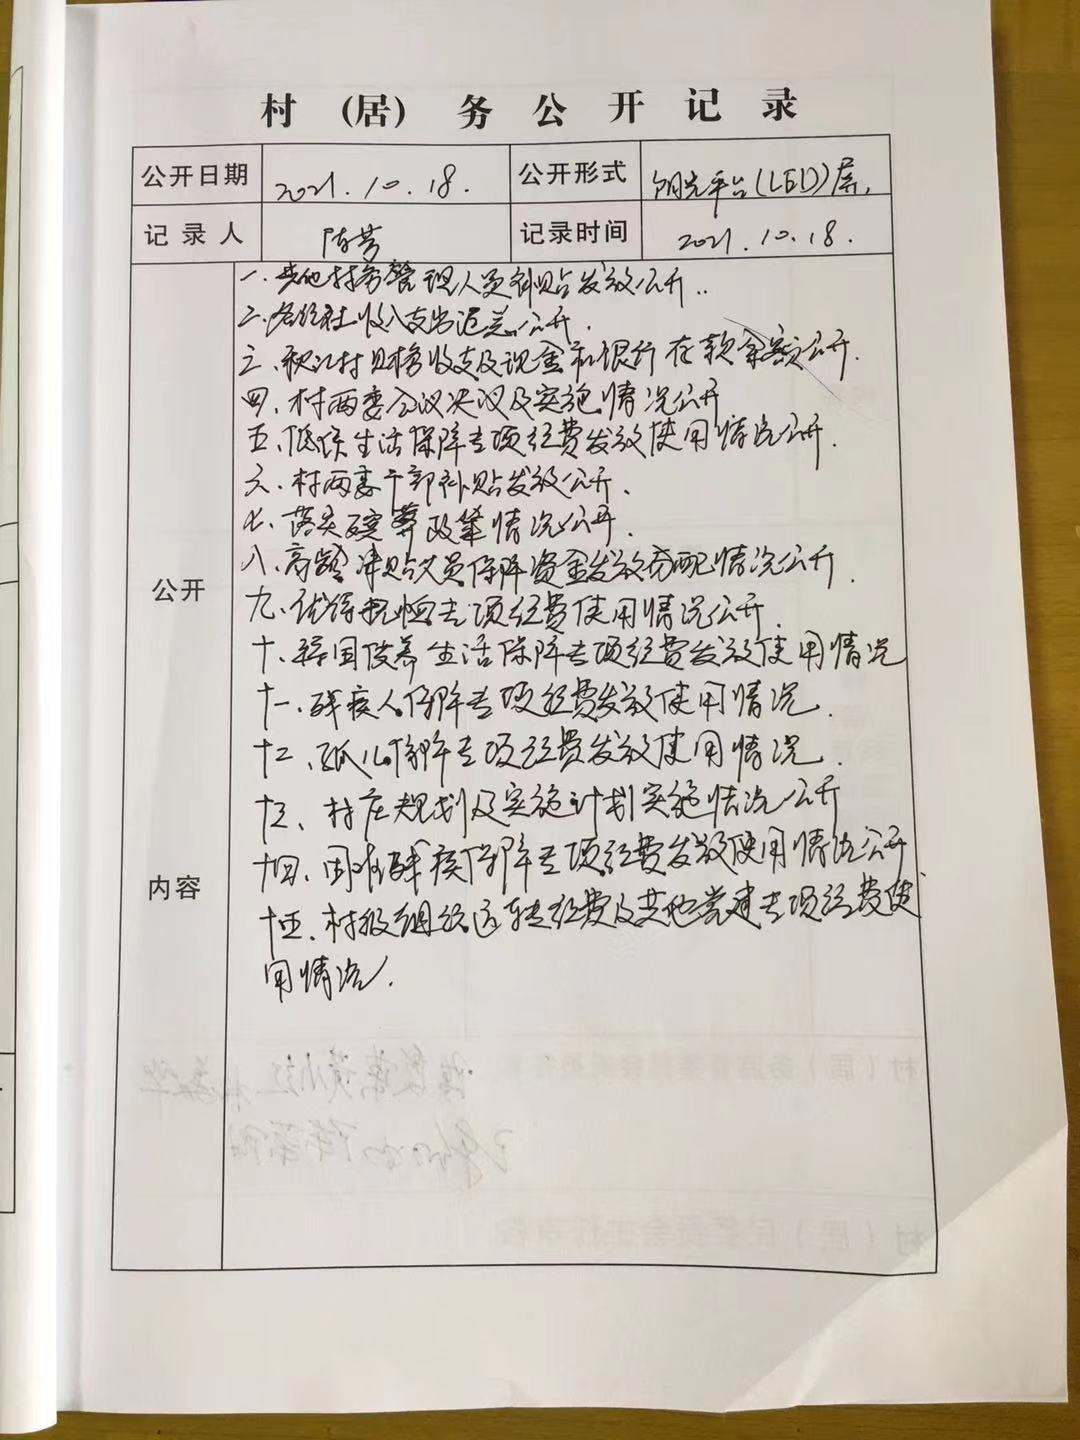 村（居）务公开记录
公开日期 2021.10.18. 公开形式 阳光平台(LED)屏,
记录人 陈芳 记录时间 2021.10.18.
公开内容
一.其他村务管理人员补贴发放公开..
二.各经社收入支出汇总公开.
三.秋江村财务收支及现金和银行存款余额公开.
四.村两委会议决议及实施情况公开
五.低保生活保障专项经费发放使用情况公开.
六.村两委干部补贴发放公开.
七.落实殡葬政策情况公开.
八.高龄津贴人员保障资金发放分配情况公开.
九.优待抚恤专项经费使用情况公开.
十.特困供养生活保障专项经费发放使用情况
十一.残疾人保障专项经费发放使用情况.
十二.孤儿保障专项经费发放使用情况.
十三、村庄规划及实施计划实施情况公开
十四.困难残疾保障专项经费发放使用情况公开
十五.村级组织运转经费及其他党建专项经费使
用情况.